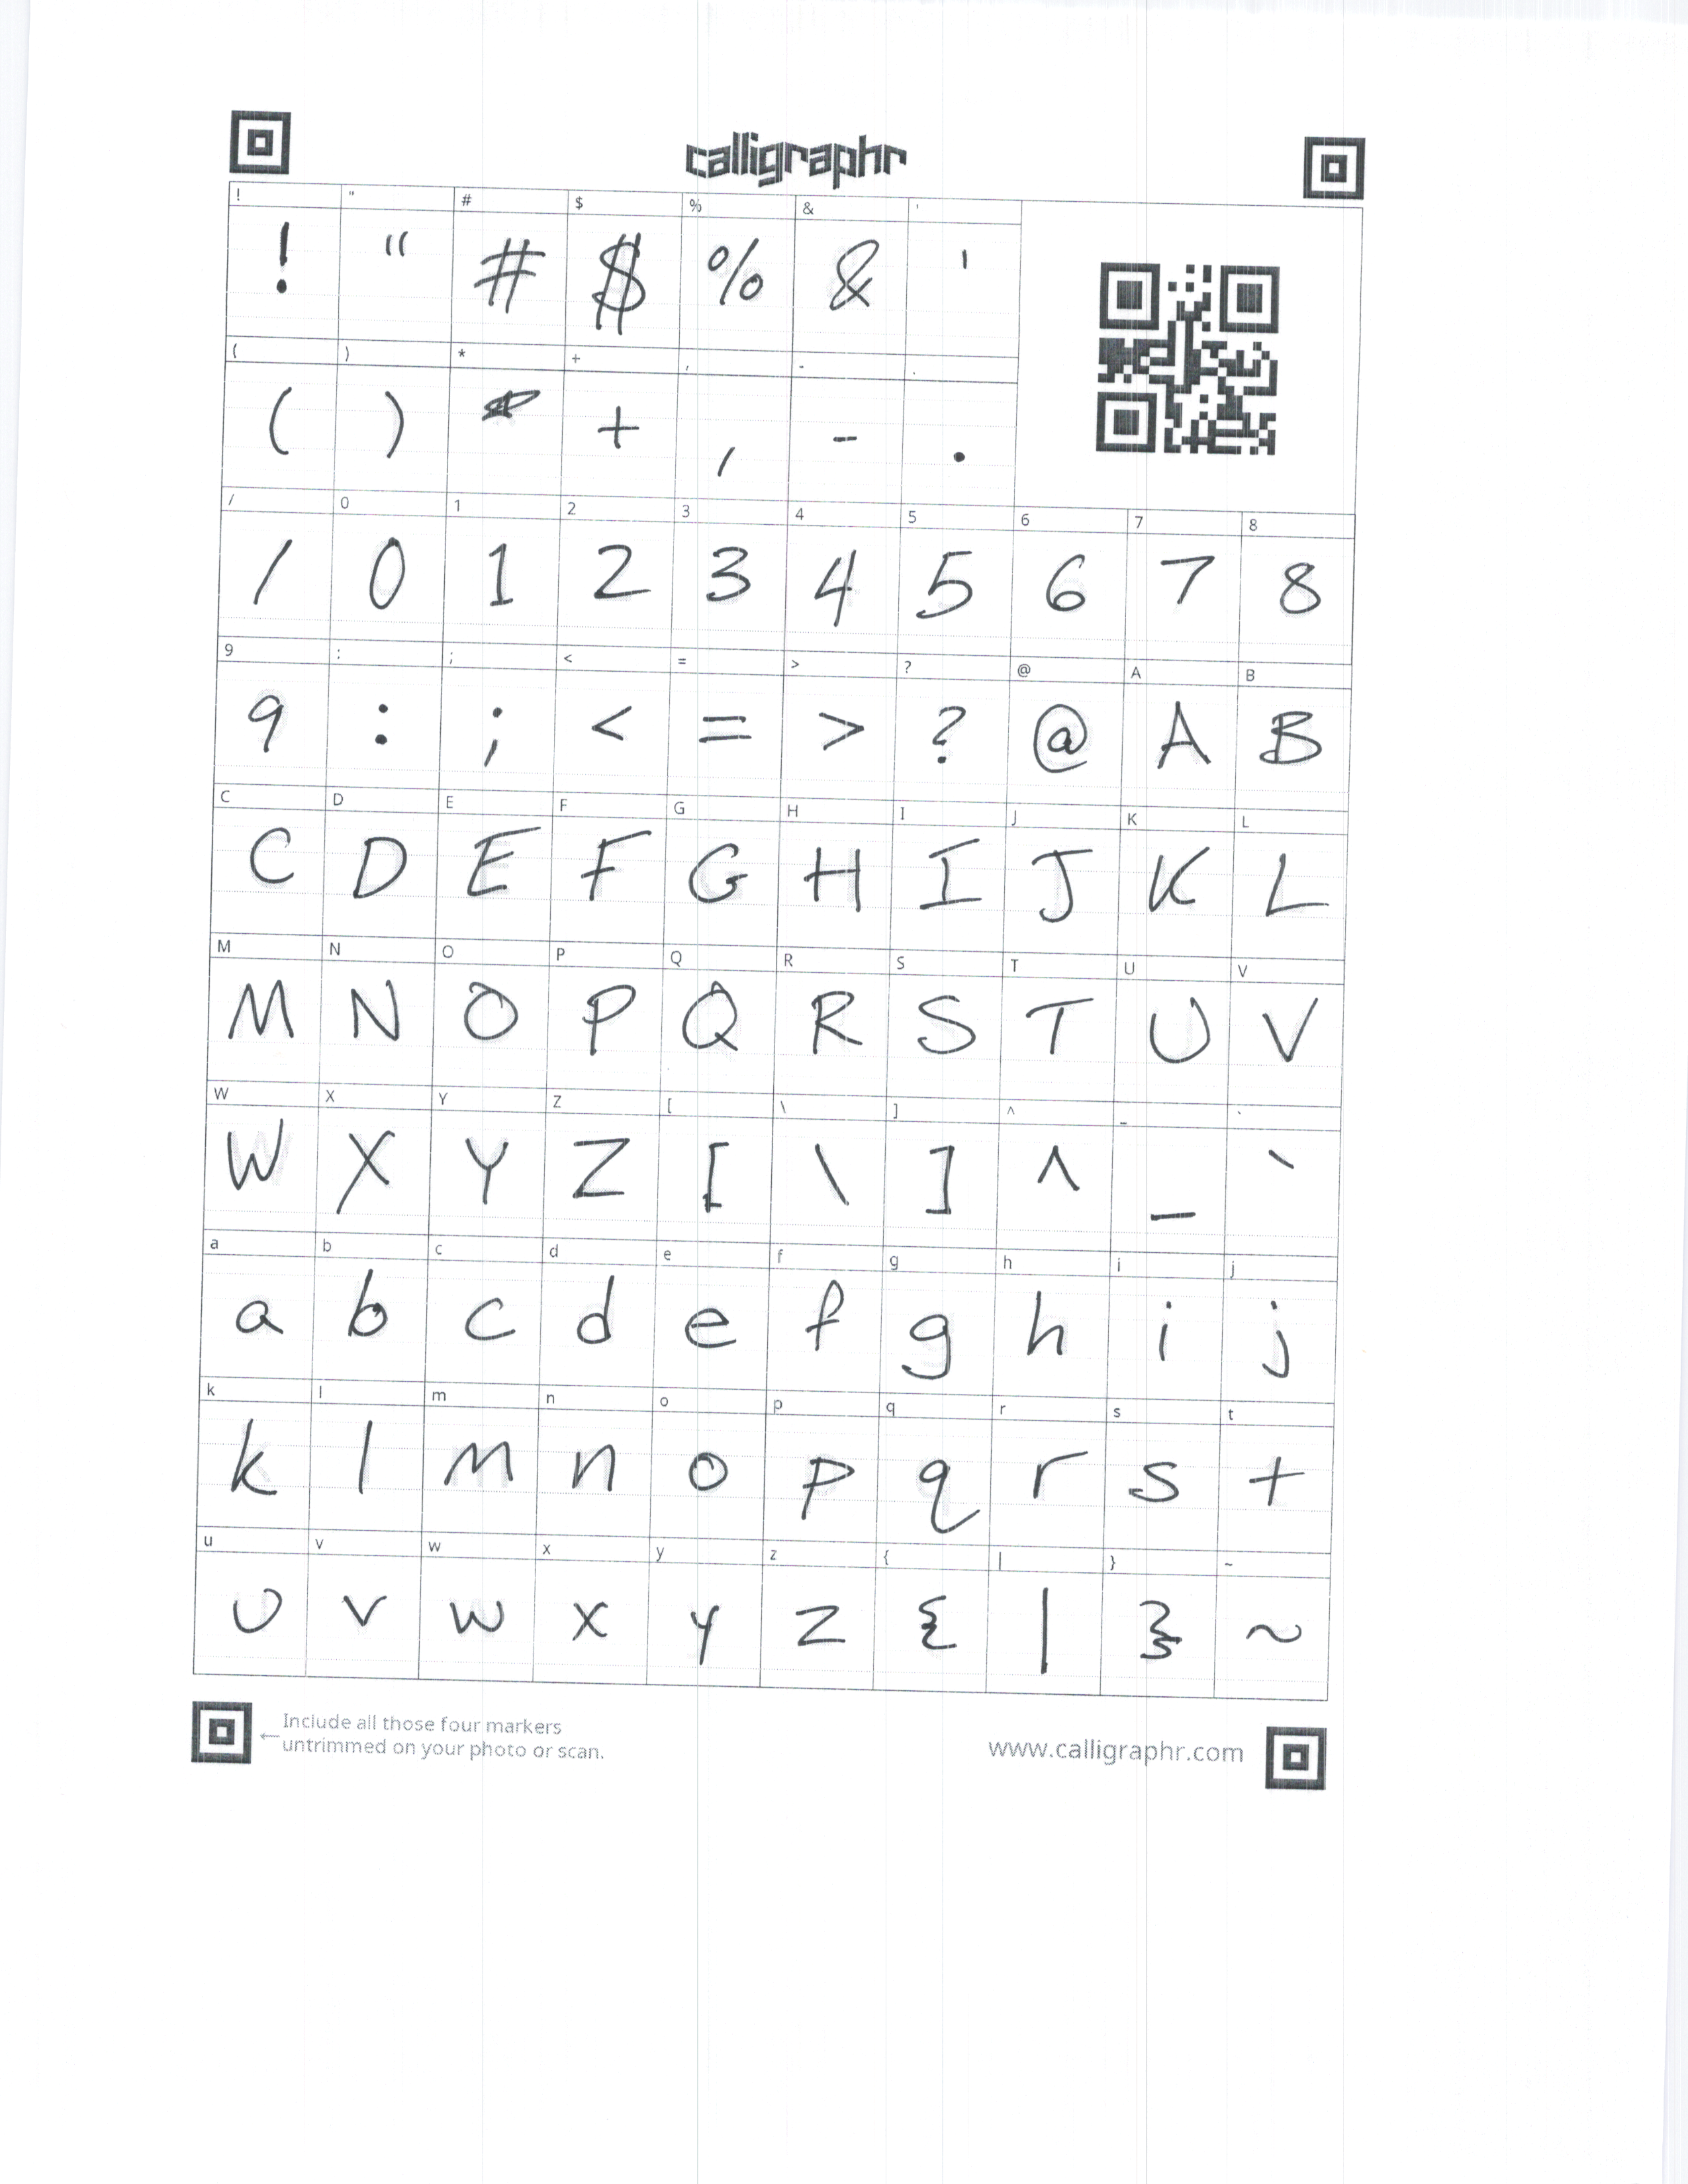 calligraphr
! " # $ % & '
! " # $ % & '
( ) * + , - .
( ) * + , - .
/ 0 1 2 3 4 5 6 7 8
/ 0 1 2 3 4 5 6 7 8
9 : ; < = > ? @ A B
9 : ; < = > ? @ A B
C D E F G H I J K L
C D E F G H I J K L
M N O P Q R S T U V
M N O P Q R S T U V
W X Y Z [ \ ] ^ _ `
W X Y Z [ \ ] ^ _ `
a b c d e f g h i j
a b c d e f g h i j
k l m n o p q r s t
k l m n o p q r s t
u v w x y z { | } ~
u v w x y z { | } ~
←Include all those four markers
untrimmed on your photo or scan.
www.calligraphr.com